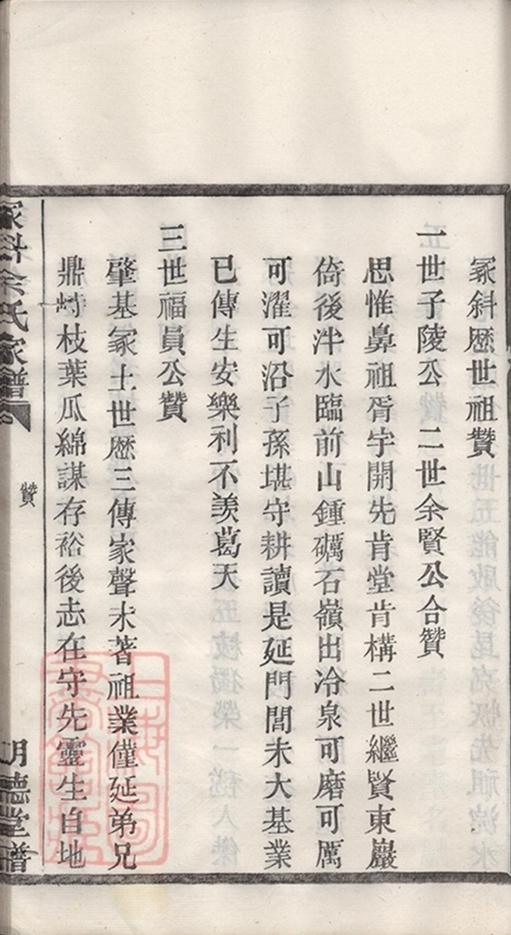 冡斜歴世祖贊
一世子陵公 二世余賢公合贊
思惟鼻祖胥宇開先肯堂肯構二世繼賢東巖
倚後泮水臨前山鍾礪石嶺出冷泉可磨可厲
可濯可沿子孫堪守耕讀是延門閭未大基業
已傳生安樂利不羡葛天
三世福員公贊
肇基冡土世歴三傳家聲未著祖業僅延弟兄
鼎峙枝葉瓜綿謀存裕後志在守先靈生自地
冡斜余氏家譜
贊
明德堂譜